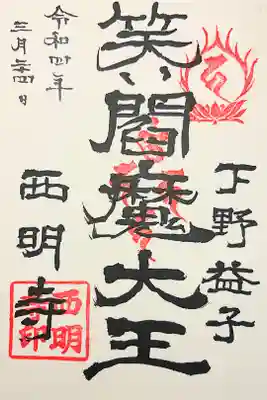 下野益子
笑い閻魔大王
令和四年
三月二十四日
西明寺
西明寺印